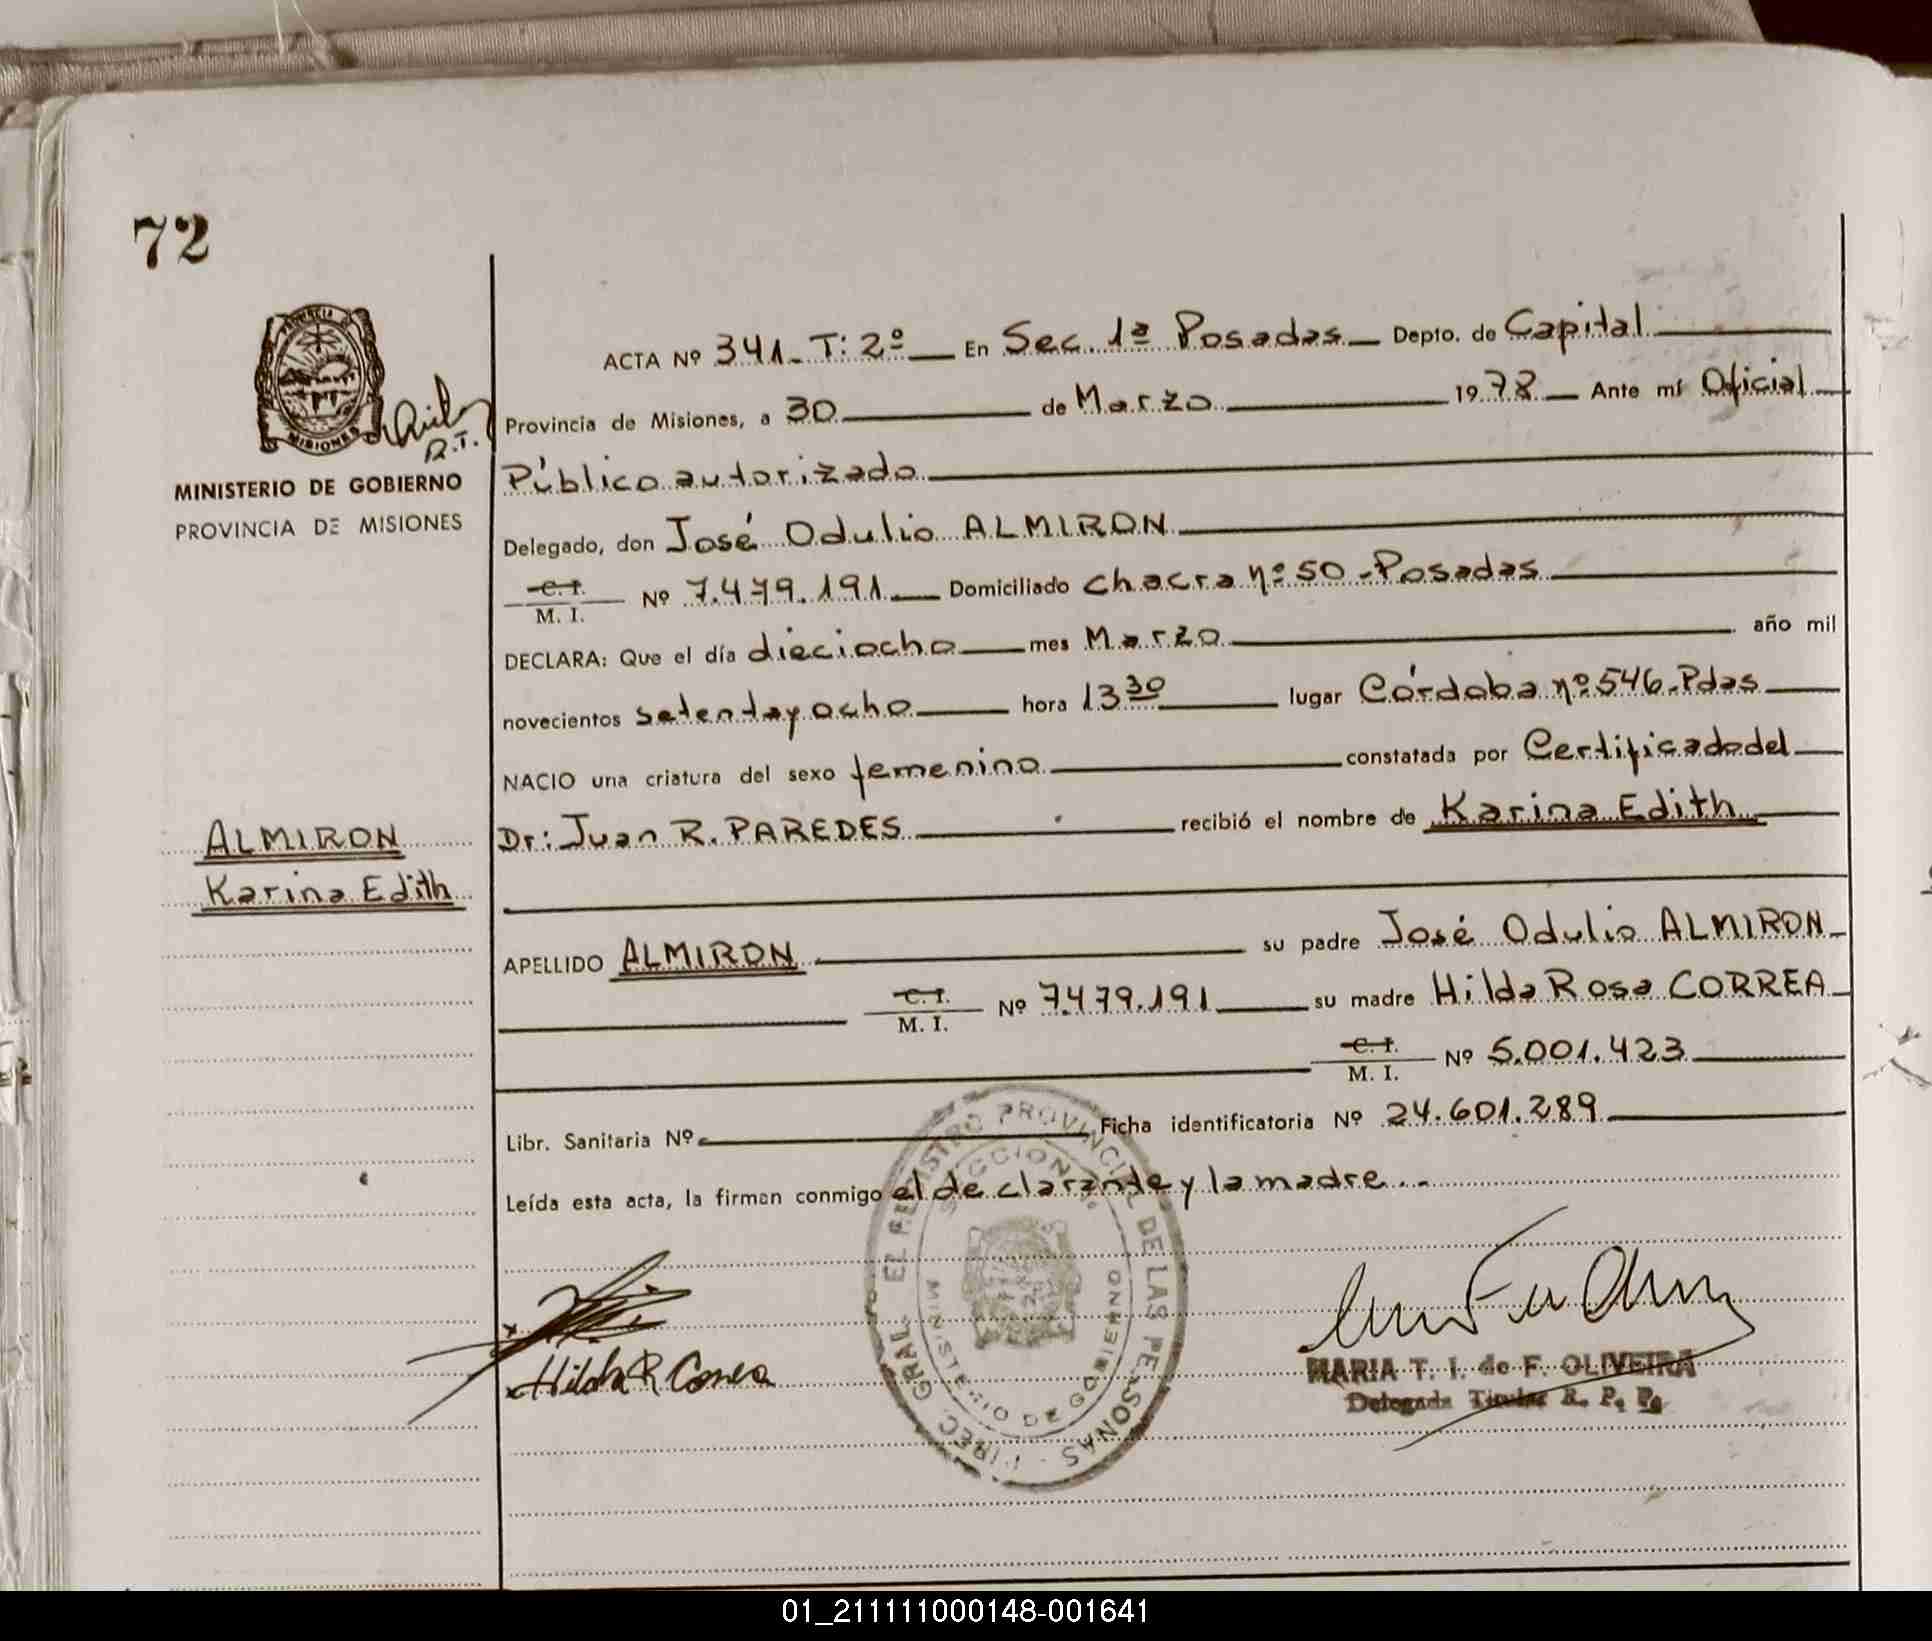 72
PROVINCIA DE
MISIONES
R.T.
MINISTERIO DE GOBIERNO
PROVINCIA DE MISIONES
ALMIRON
Karina Edith
ACTA Nº 341 - T: 2º En Sec. 1ª Posadas Depto. de Capital
Provincia de Misiones, a 30 de Marzo 1978 Ante mí Oficial
Público autorizado
Delegado, don José Odulio ALMIRON
C. I. M. I. Nº 7.479.191 Domiciliado chacra nº 50 - Posadas
DECLARA: Que el día dieciocho mes Marzo año mil
novecientos setentayocho hora 13 30 lugar Córdoba nº 546 - Pdas
NACIO una criatura del sexo femenino constatada por Certificado del
Dr: Juan R. PAREDES recibió el nombre de Karina Edith
APELLIDO ALMIRON su padre José Odulio ALMIRON
C. I. M. I. Nº 7.479.191 su madre Hilda Rosa CORREA
C. I. M. I. Nº 5.001.423
Libr. Sanitaria Nº Ficha identificatoria Nº 24.601.289
Leída esta acta, la firman conmigo el declarante y la madre..
Hilda R Correa
DIREC. GRAL. EL REGISTRO PROVINCIAL DE LAS PERSONAS
SECCION
MINISTERIO DE GOBIERNO
MARIA T. I. de F. OLIVEIRA
Delegada Titular R. P. P.
01_211111000148-001641